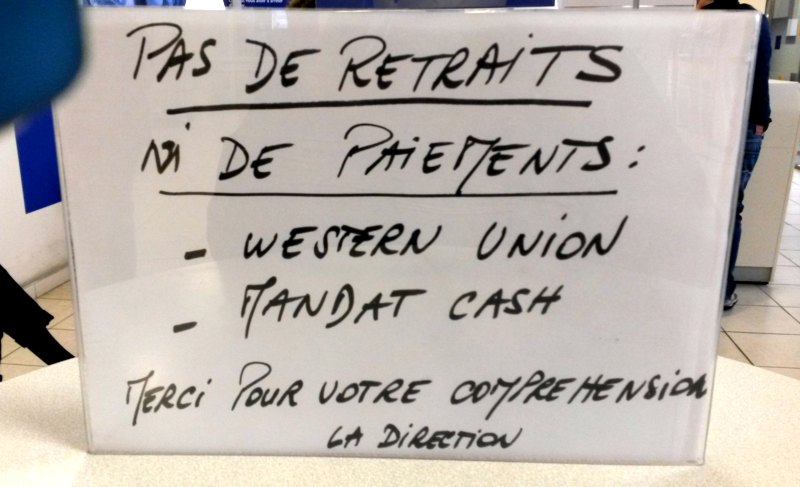 PAS DE RETRAITS
Ni DE PAIEMENTS :
- WESTERN UNION
- MANDAT CASH
MERCI POUR VOTRE COMPREHENSION
LA DIRECTION